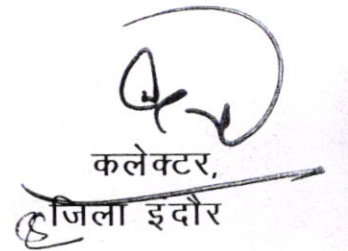 कलेक्टर,
जिला इंदौर